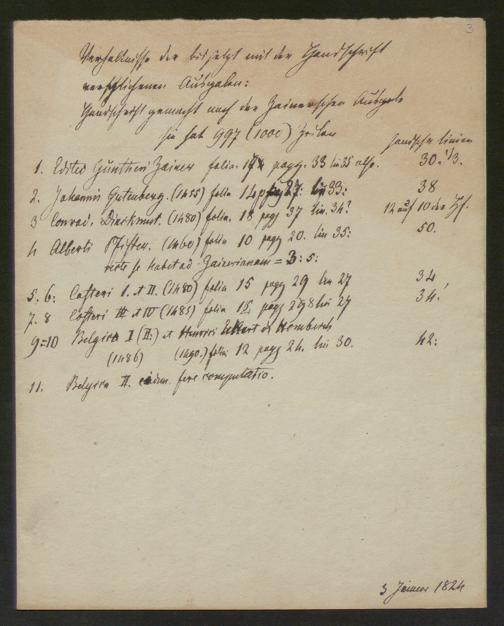 3
Verhältnisse der bis jetzt mit der Handschrift
verglichenen Ausgaben:
Handschrift gemacht nach der Zainerschen Ausgabe
sie hat 997 (1000) Zeilen
1. Editio Guntheri Zainer folia. 17 pagg. 33 lin 35 30. 1/3.
2. Johannis Gutenberg. (1455) folia 14 pagg 27: lin 33: 38
3 Conrad. Dinkmut. (1480) folia. 18 pagg 37 lin. 34? 12 auf 10 der Hs.
4 Alberti Pfister. (1460) folia 10 pagg 20. lin 35: 50.
se habet ad Zainerianam = 3: 5:
5. 6: Costeri I. et II. (1480) folia 15 pagg 29 lin 27 34
7. 8 Costeri III et IV (1485) folia 15 pagg 29 lin 27 34.
9=10 Belgica I (II:) et Henrici Eckert de Homberch
(1486) (1490.) folia 12 pagg 24. lin 30. 42:
11. Belgica II. eadem. fere computatio.
3 Jänner 1824